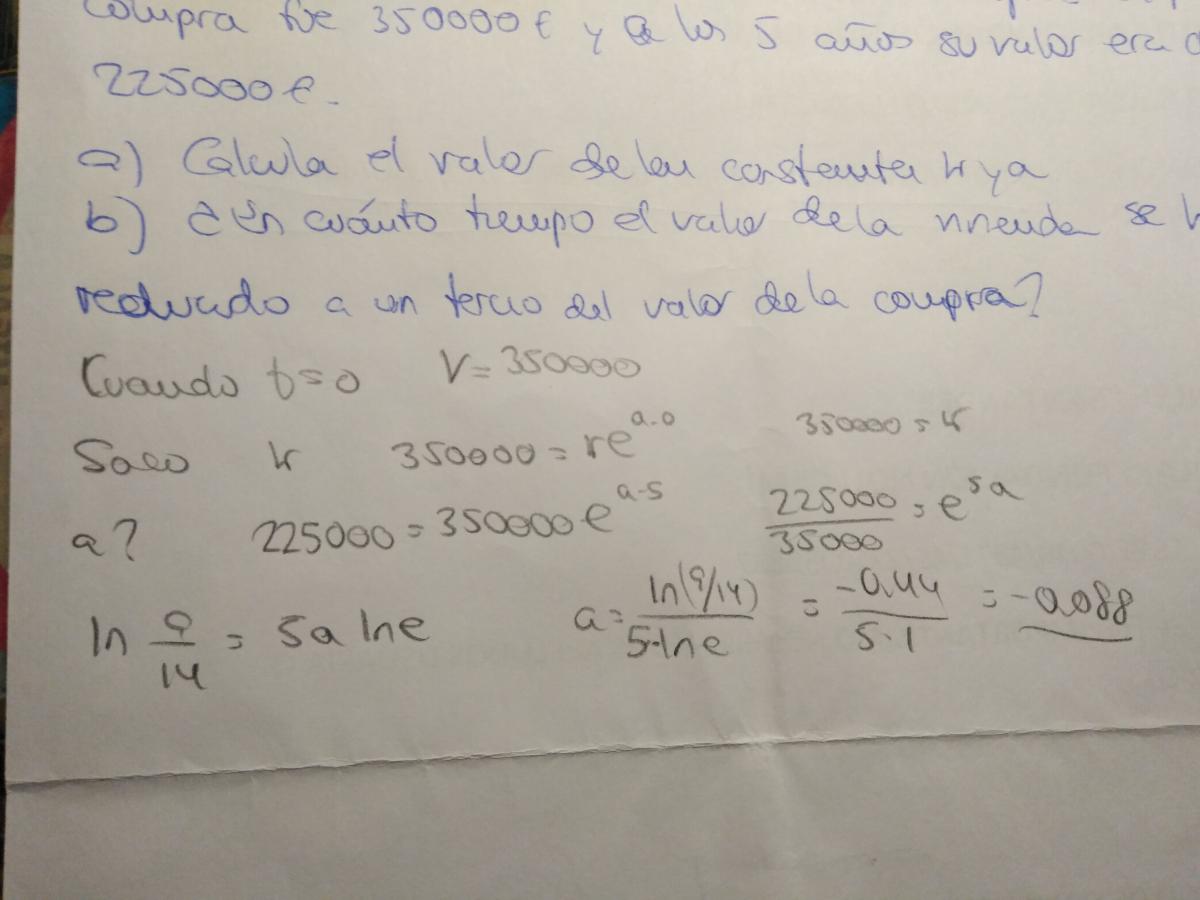 compra fue 350000€ y a los 5 años su valor era d
225000€.
a) Calcula el valor de las constantes k y a
b) ¿En cuánto tiempo el valor de la vivienda se h
reducido a un tercio del valor de la compra?
Cuando t=0 V=350000
Saco k 350000=ke^{a·0} 350000=k
a? 225000=350000e^{a·5} 225000/35000=e^{5a}
ln 9/14 = 5a lne a= ln(9/14)/5·lne = -0,44/5·1 = -0,088